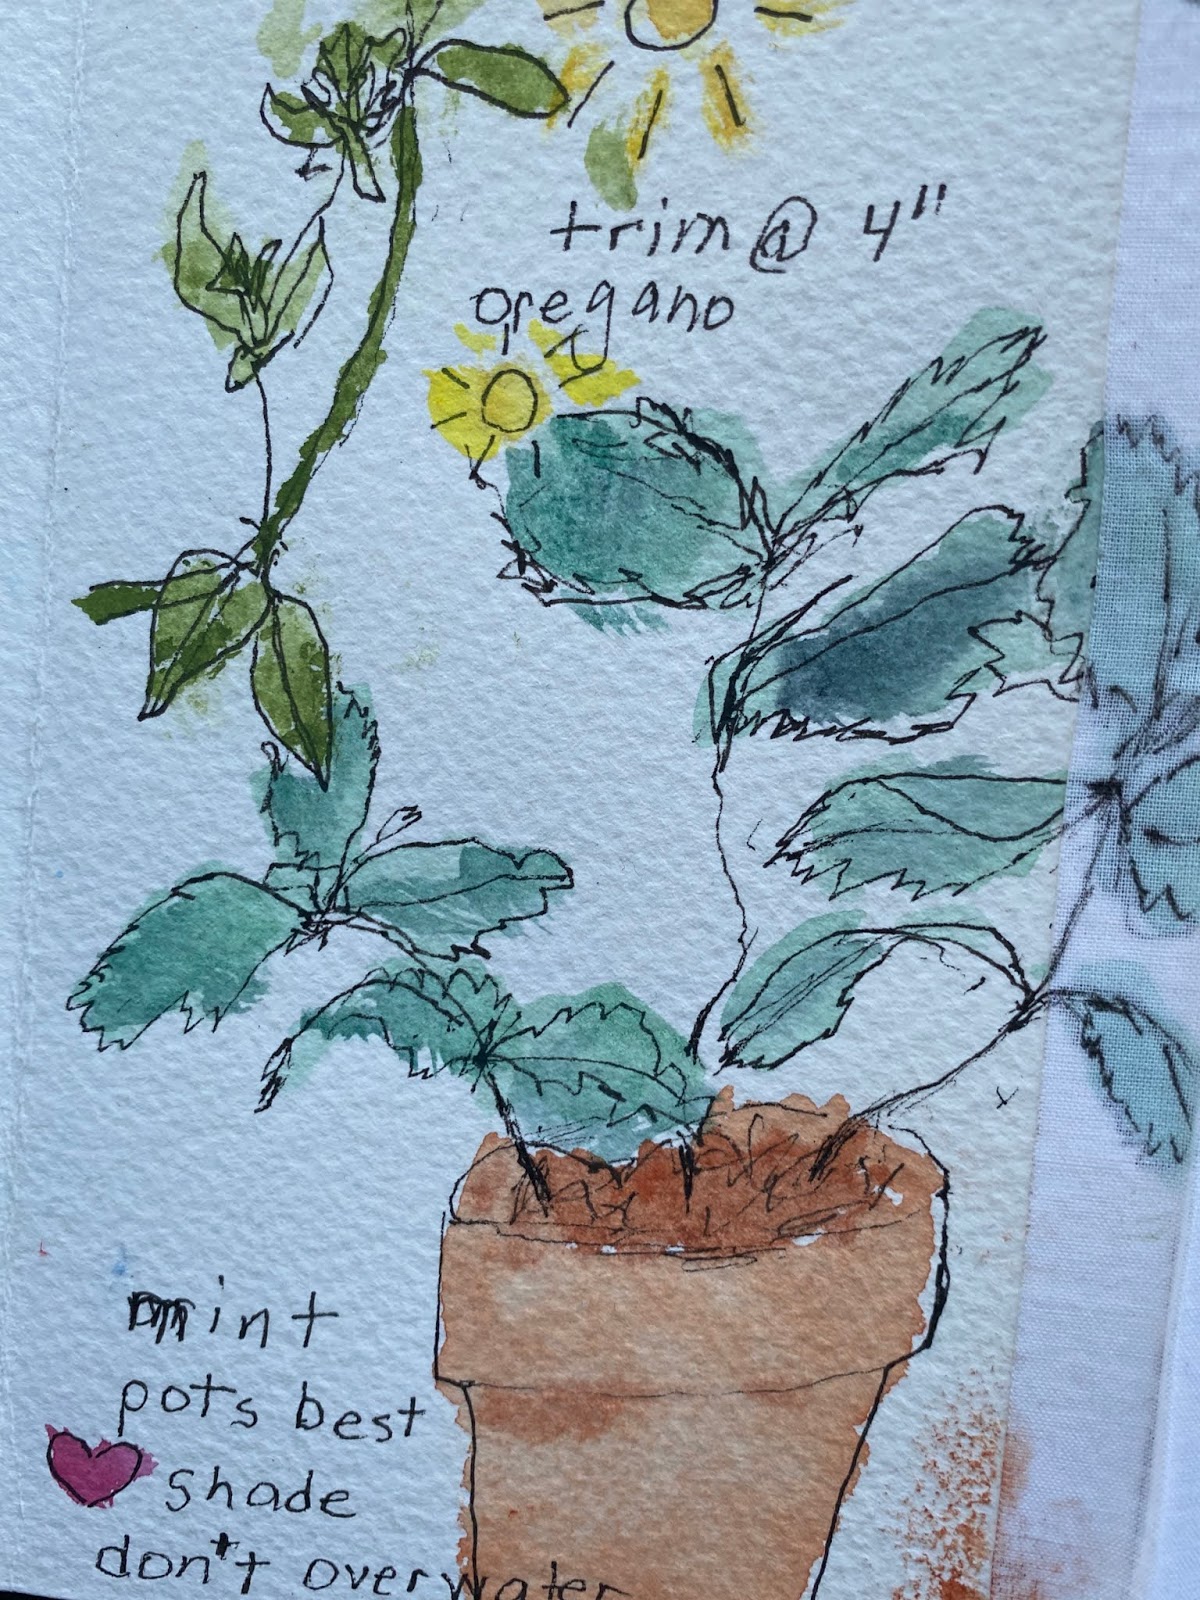 trim @ 4"
oregano
mint
pots best
shade
don't over water